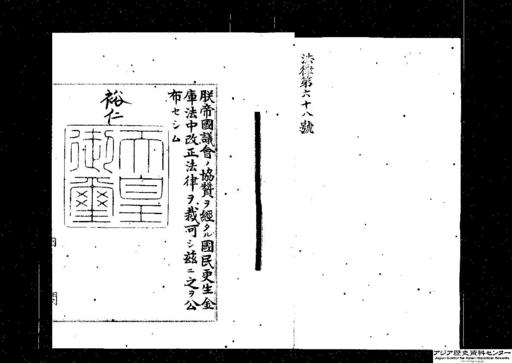 法律第六十八號
朕帝國議會ノ協贊ヲ經タル國民更生金
庫法中改正法律ヲ裁可シ茲ニ之ヲ公
布セシム
裕仁
天皇
御璽
内閣
アジア歴史資料センター
Japan Center for Asian Historical Records